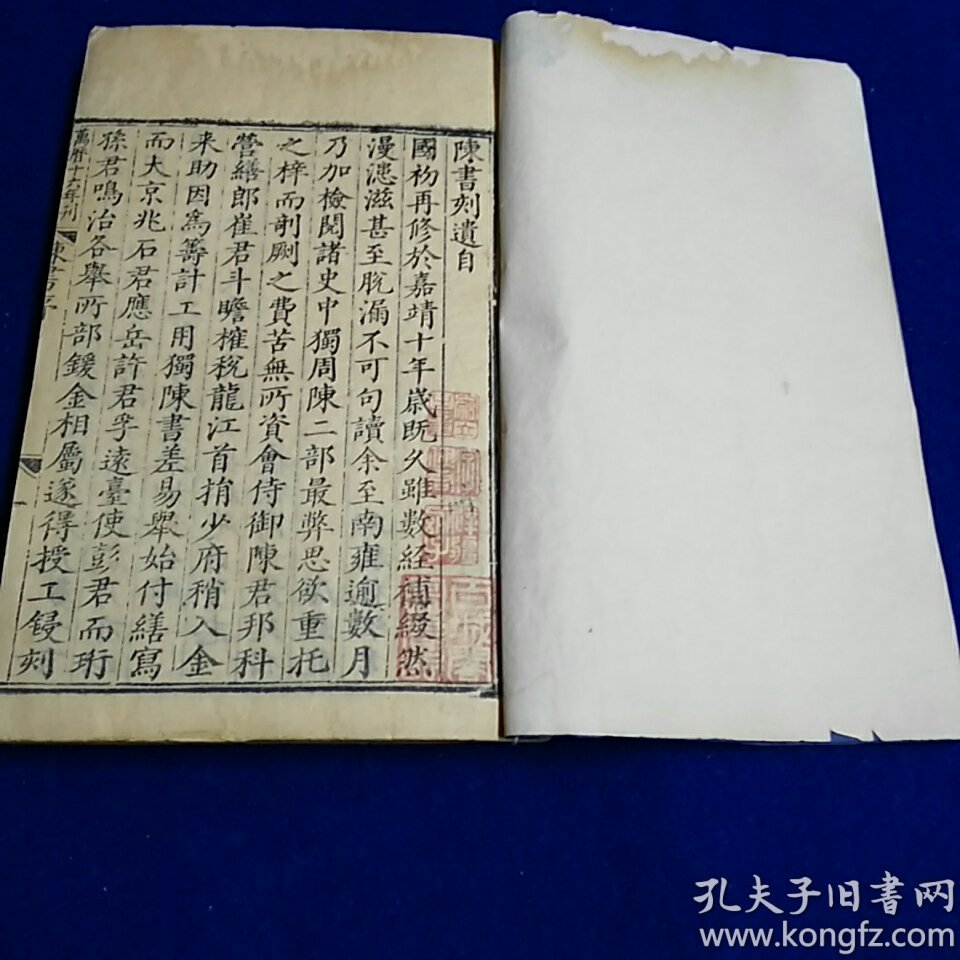 陳書刻遺自
國初再修於嘉靖十年歲既久雖數經補綴然
漫漶滋甚至脫漏不可句讀余至南雍逾數月
乃加檢閱諸史中獨周陳二部最弊思欲重托
之梓而剞劂之費苦無所資會侍御陳君邦科
營繕郎崔君斗瞻榷稅龍江首捐少府稍入金
来助因為籌計工用獨陳書差易舉始付繕寫
而大京兆石君應岳許君孚遠臺使彭君而珩
孫君鳴治各舉所部鍰金相屬遂得授工鋟刻
萬曆十六年刊
陳書序
孔夫子旧書网
www.kongfz.com